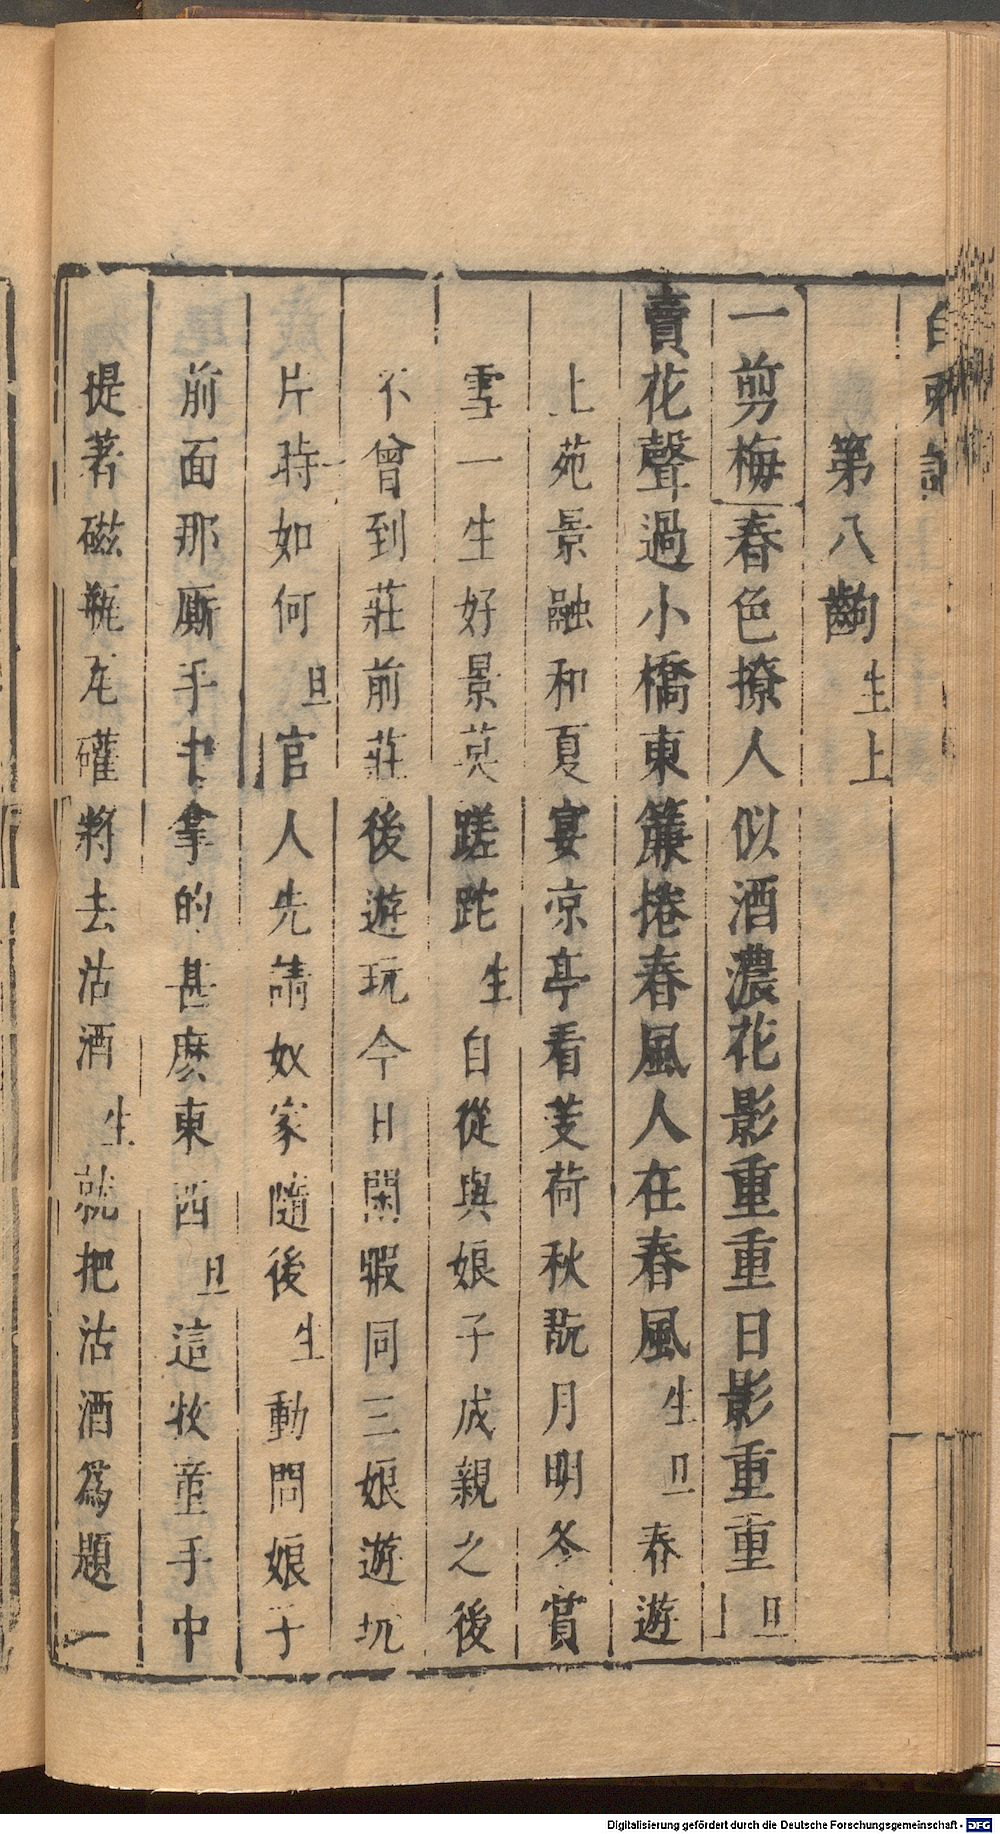 第八齣 生上
一剪梅 春色撩人似酒濃花影重重日影重重 旦上
賣花聲過小橋東簾捲春風人在春風 生旦 春遊
上苑景融和夏宴凉亭看芰荷秋翫月明冬賞
雪一生好景莫蹉跎 生 自從與娘子成親之後
不曾到莊前莊後遊玩今日閑暇同三娘遊玩
片時如何 旦 官人先請奴家隨後 生 動問娘子
前面那厮手中拿的甚麽東西 旦 這牧童手中
提著磁瓶瓦礶將去沽酒 生 就把沽酒爲題一
Digitalisierung gefördert durch die Deutsche Forschungsgemeinschaft - DFG